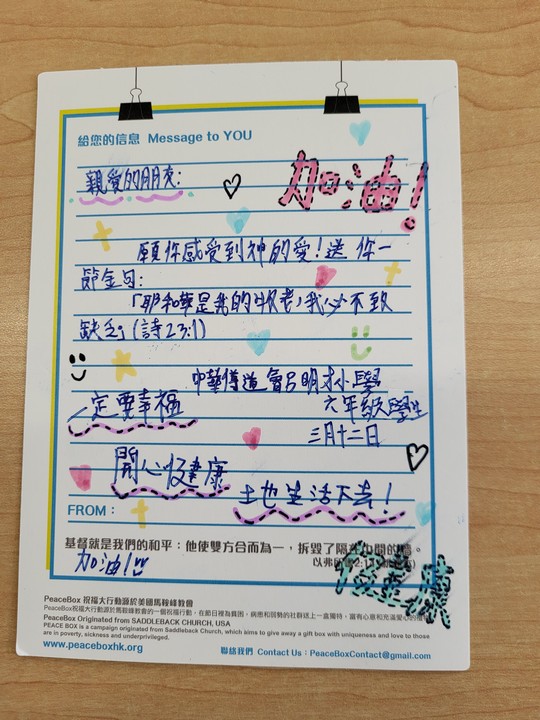 給您的信息 Message to YOU
親愛的朋友:
加油!
願你感受到神的愛!送你一
節金句:
「耶和華是我的牧者,我必不致
缺乏」(詩23:1)
中華傳道會呂明才小學
六年級學生
三月十二日
一定要幸福
開心健康
土也生活下去!
FROM:
基督就是我們的和平:他使雙方合而為一,拆毀了隔在中間的牆。
以弗所書2:
加油!!
PeaceBox 祝福大行動源於美國馬鞍峰教會
PeaceBox祝福大行動源於馬鞍峰教會的一個祝福行動,在節日裡為貧困、病患和弱勢的社群送上一盒獨特、富有心意和充滿愛心的禮
PeaceBox Originated from SADDLEBACK CHURCH, USA
PEACE BOX is a campaign originated from Saddleback Church, which aims to give away a gift box with uniqueness and love to those
are in poverty, sickness and underprivileged.
www.peaceboxhk.org
聯絡我們 Contact Us:PeaceBoxContact@gmail.com